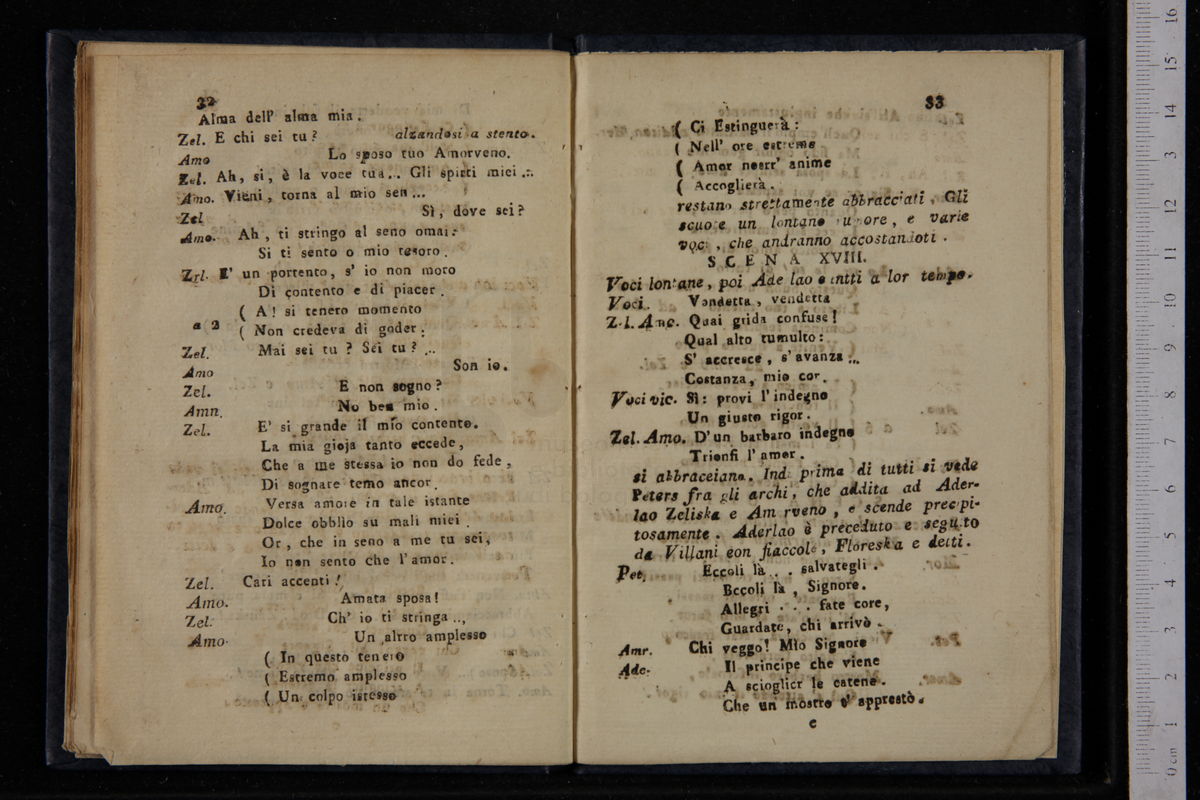 32
Alma dell' alma mia.
Zel. E chi sei tu? alzandosi a stento.
Amo Lo sposo tuo Amorveno.
Zel. Ah, si, è la voce tua.. Gli spirti miei ..
Amo. Vieni, torna al mio sen...
Zel Sì, dove sei?
Amo. Ah, ti stringo al seno omai:
Si ti sento o mio tesoro.
Zel. E' un portento, s' io non moro
Di contento e di piacer.
( A! si tenero momento
a 2 ( Non credeva di goder:
Zel. Mai sei tu? Sei tu? ..
Amo Son io.
Zel. E non sogno?
Amn. No ben mio.
Zel. E' si grande il mio contento.
La mia gioja tanto eccede,
Che a me stessa io non do fede,
Di sognare temo ancor.
Amo. Versa amore in tale istante
Dolce obblio su mali miei.
Or, che in seno a me tu sei,
Io non sento che l'amor.
Zel. Cari accenti!
Amo. Amata sposa!
Zel. Ch' io ti stringa..,
Amo. Un altro amplesso
( In questo tenero
( Estremo amplesso
( Un colpo istesso
33
( Ci Estinguerà:
( Nell' ore estreme
( Amor nostr' anime
( Accoglierà.
restano strettamente abbracciati. Gli
scuote un lontano rumore, e varie
voci, che andranno accostandoti.
SCENA XVIII.
Voci lontane, poi Aderlao e tutti a lor tempo.
Voci. Vendetta, vendetta
Zel. Amo. Quai grida confuse!
Qual alto tumulto:
S' accresce, s' avanza ...
Costanza, mio cor.
Voci vic. Sì: provi l'indegno
Un giusto rigor.
Zel. Amo. D'un barbaro indegno
Trionfi l'amor.
si abbraceiano. Indi prima di tutti si vede
Peters fra gli archi, che addita ad Ader-
lao Zeliska e Amorveno, e scende precipi-
tosamente. Aderlao è preceduto e seguito
da Villani eon fiaccole, Floreska e detti.
Pet. Eccoli là . . salvategli.
Eccoli là, Signore.
Allegri . . . fate core,
Guardate, chi arrivò.
Amr. Chi veggo! Mio Signore
Ade. Il principe che viene
A scioglier le catene.
Che un mostro t' apprestò.
c